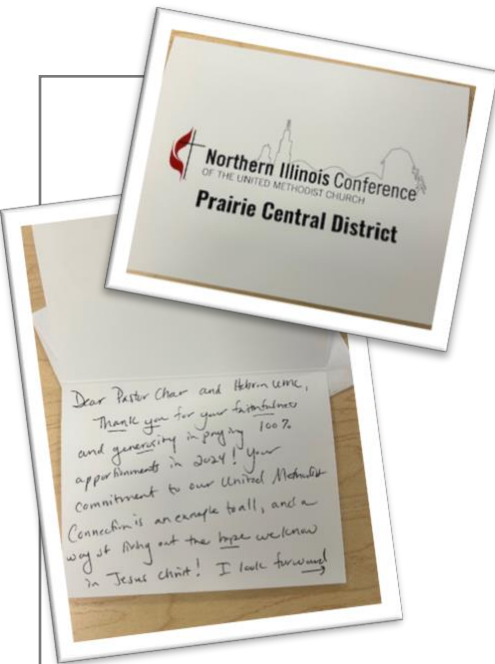 Northern Illinois Conference
OF THE UNITED METHODIST CHURCH
Prairie Central District
Dear Pastor Char and Hebron UMC,
Thank you for your faithfulness
and generosity in paying 100%
apportionments in 2024! Your
commitment to our United Methodist
Connection is an example to all, and a
way of living out the hope we know
in Jesus Christ! I look forward